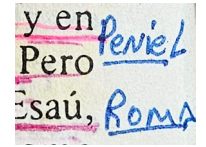 y en Peniel
Pero
Esaú, ROMA